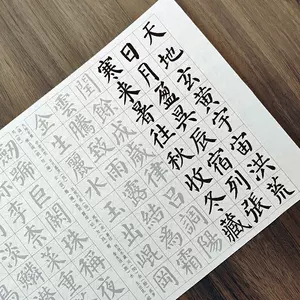 天地玄黃宇宙洪荒
日月盈昃辰宿列張
寒來暑往秋收冬藏
閏餘成歲律呂調陽
雲騰致雨露結為霜
金生麗水玉出崐岡
巨闕珠稱夜
李柰菜重
淡鱗